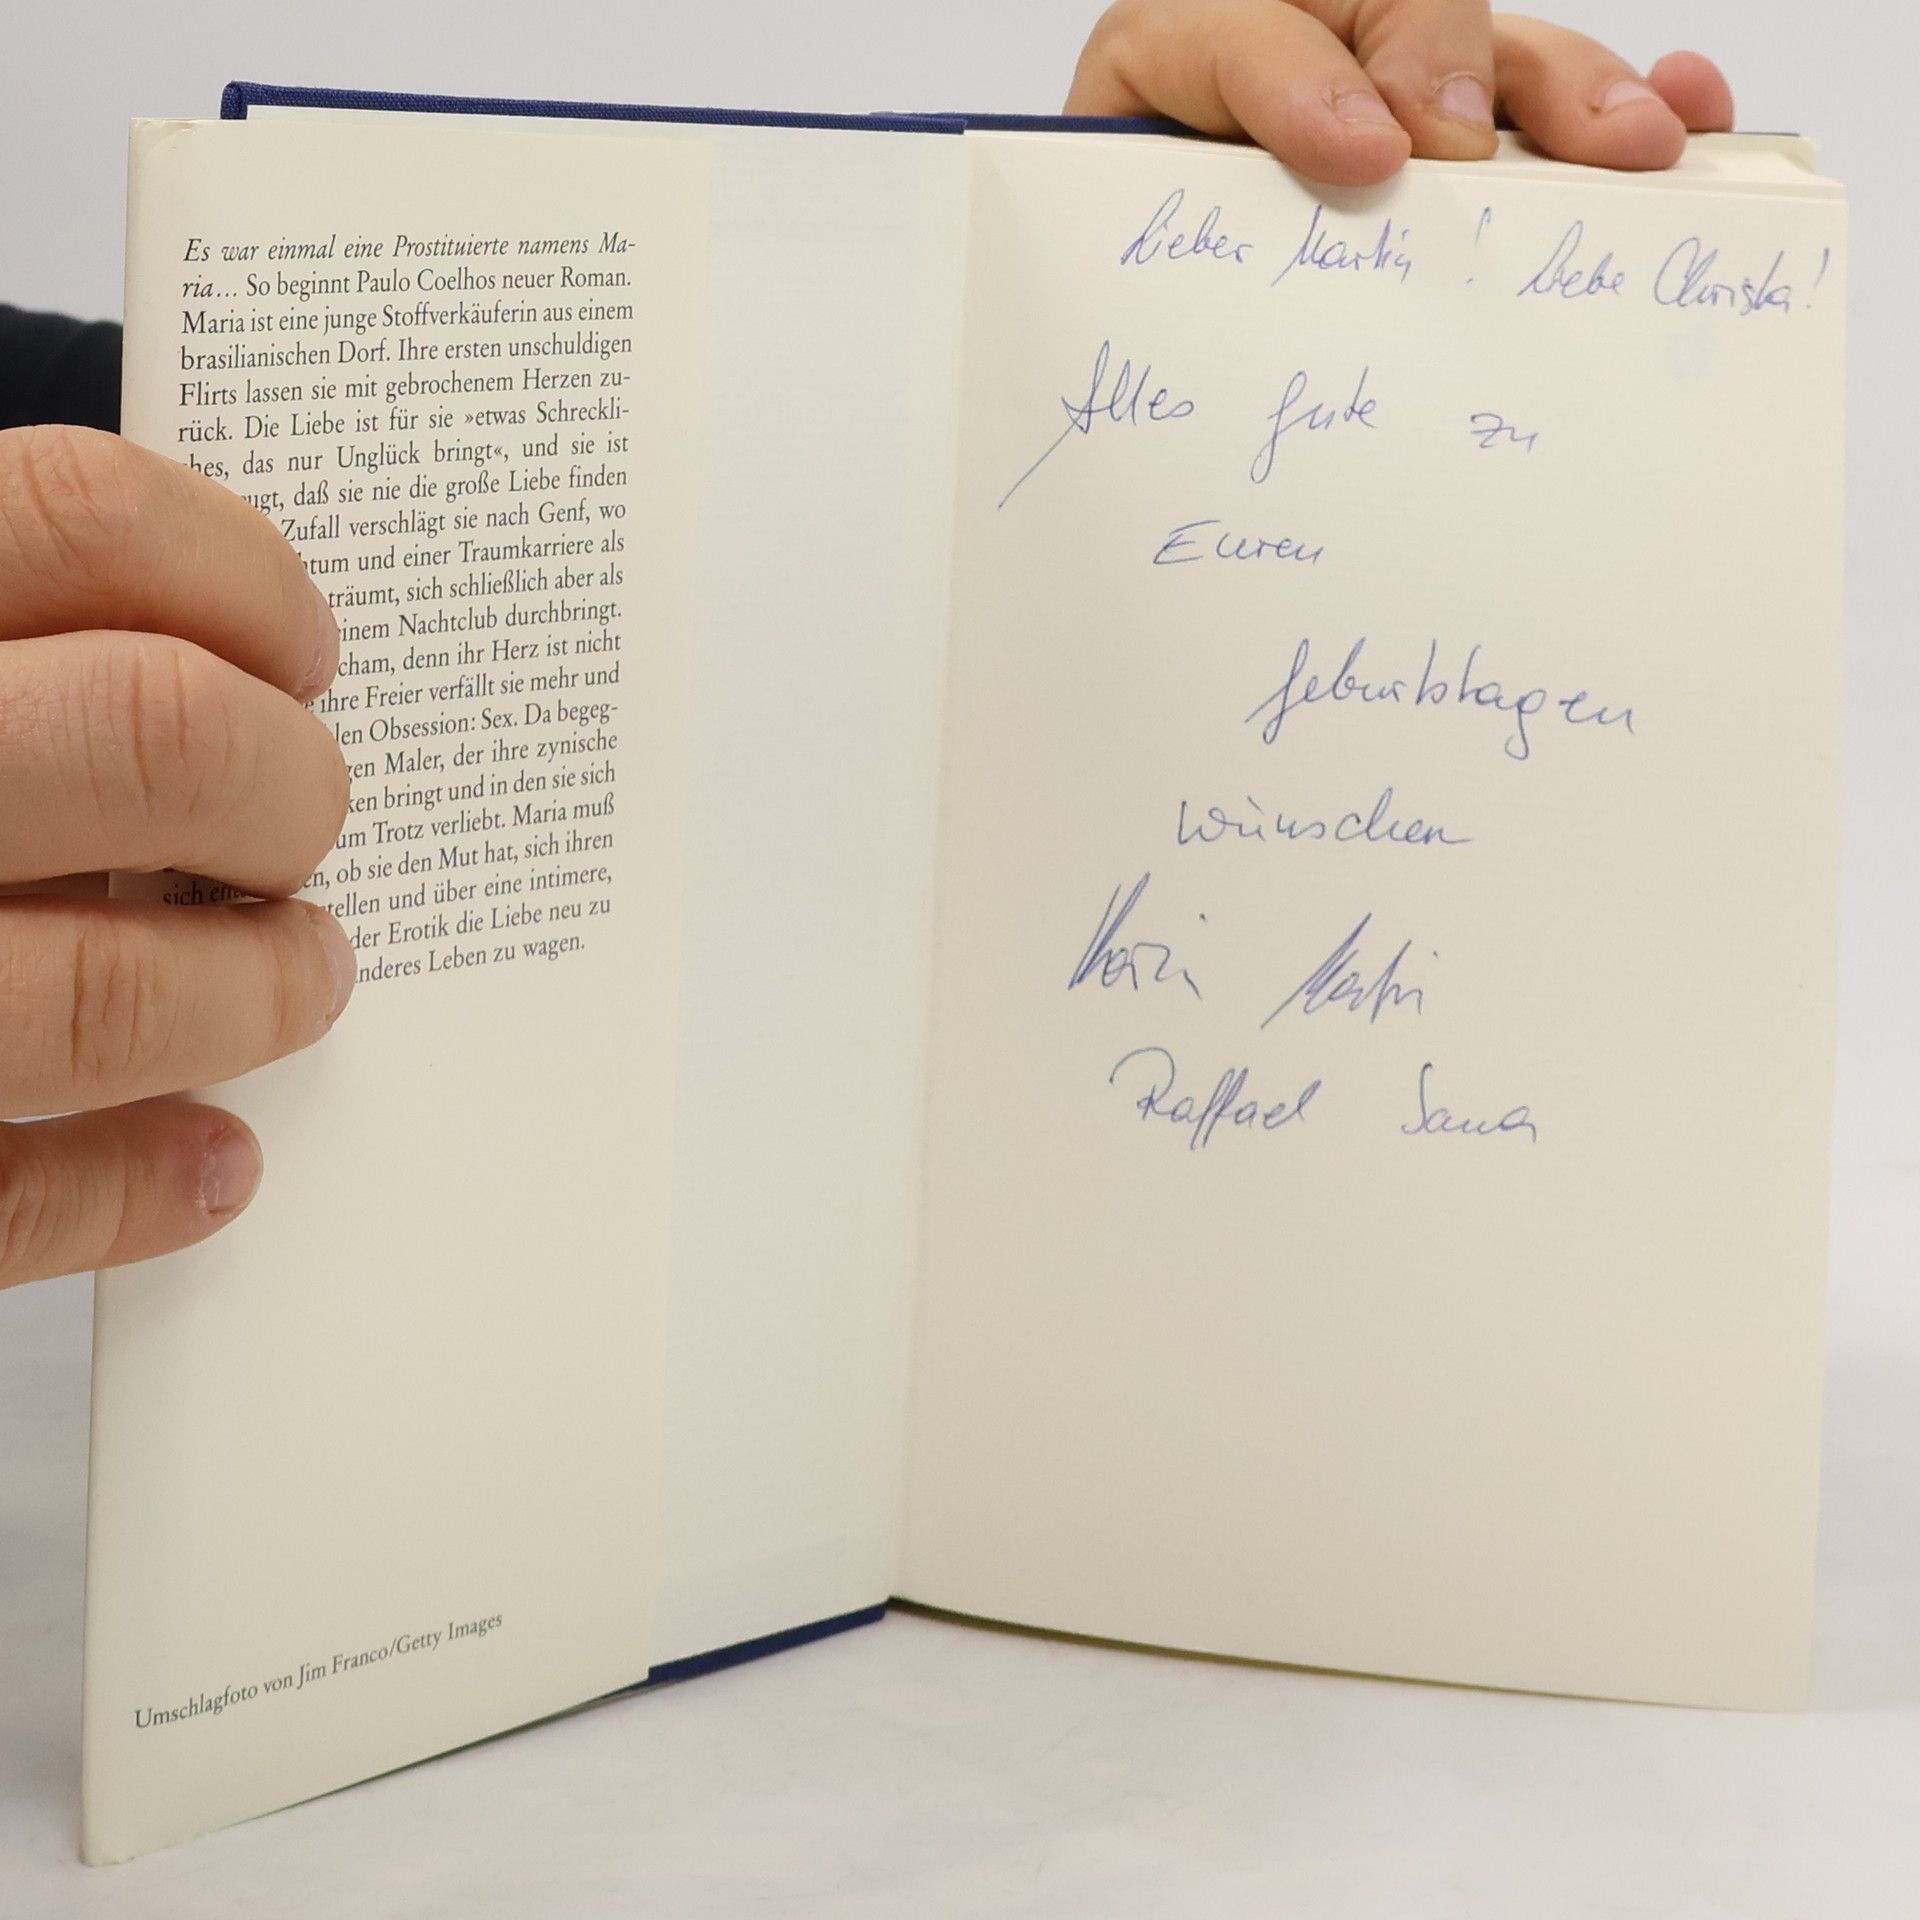 Es war einmal eine Prostituierte namens Ma-
ria... So beginnt Paulo Coelhos neuer Roman.
Maria ist eine junge Stoffverkäuferin aus einem
brasilianischen Dorf. Ihre ersten unschuldigen
Flirts lassen sie mit gebrochenem Herzen zu-
rück. Die Liebe ist für sie »etwas Schreckli-
ches, das nur Unglück bringt«, und sie ist
daß sie nie die große Liebe finden
Zufall verschlägt sie nach Genf, wo
und einer Traumkarriere als
träumt, sich schließlich aber als
einem Nachtclub durchbringt.
denn ihr Herz ist nicht
ihre Freier verfällt sie mehr und
Obsession: Sex. Da begeg-
Maler, der ihre zynische
bringt und in den sie sich
Trotz verliebt. Maria muß
sich ob sie den Mut hat, sich ihren
und über eine intimere,
der Erotik die Liebe neu zu
Leben zu wagen.
Umschlagfoto von Jim Franco/Getty Images
Lieber Martin! Liebe Christa!
Alles Gute zu
Euren
Geburtstagen
wünschen
Martin
Raffael